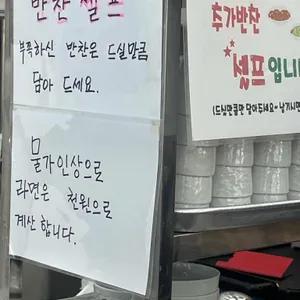 반찬 셀프
부족하신 반찬은 드실만큼
담아 드세요.
물가인상으로
라면은 천원으로
계산 합니다.
추가반찬
셀프입니
(드실만큼만 담아주세요~ 남기시면